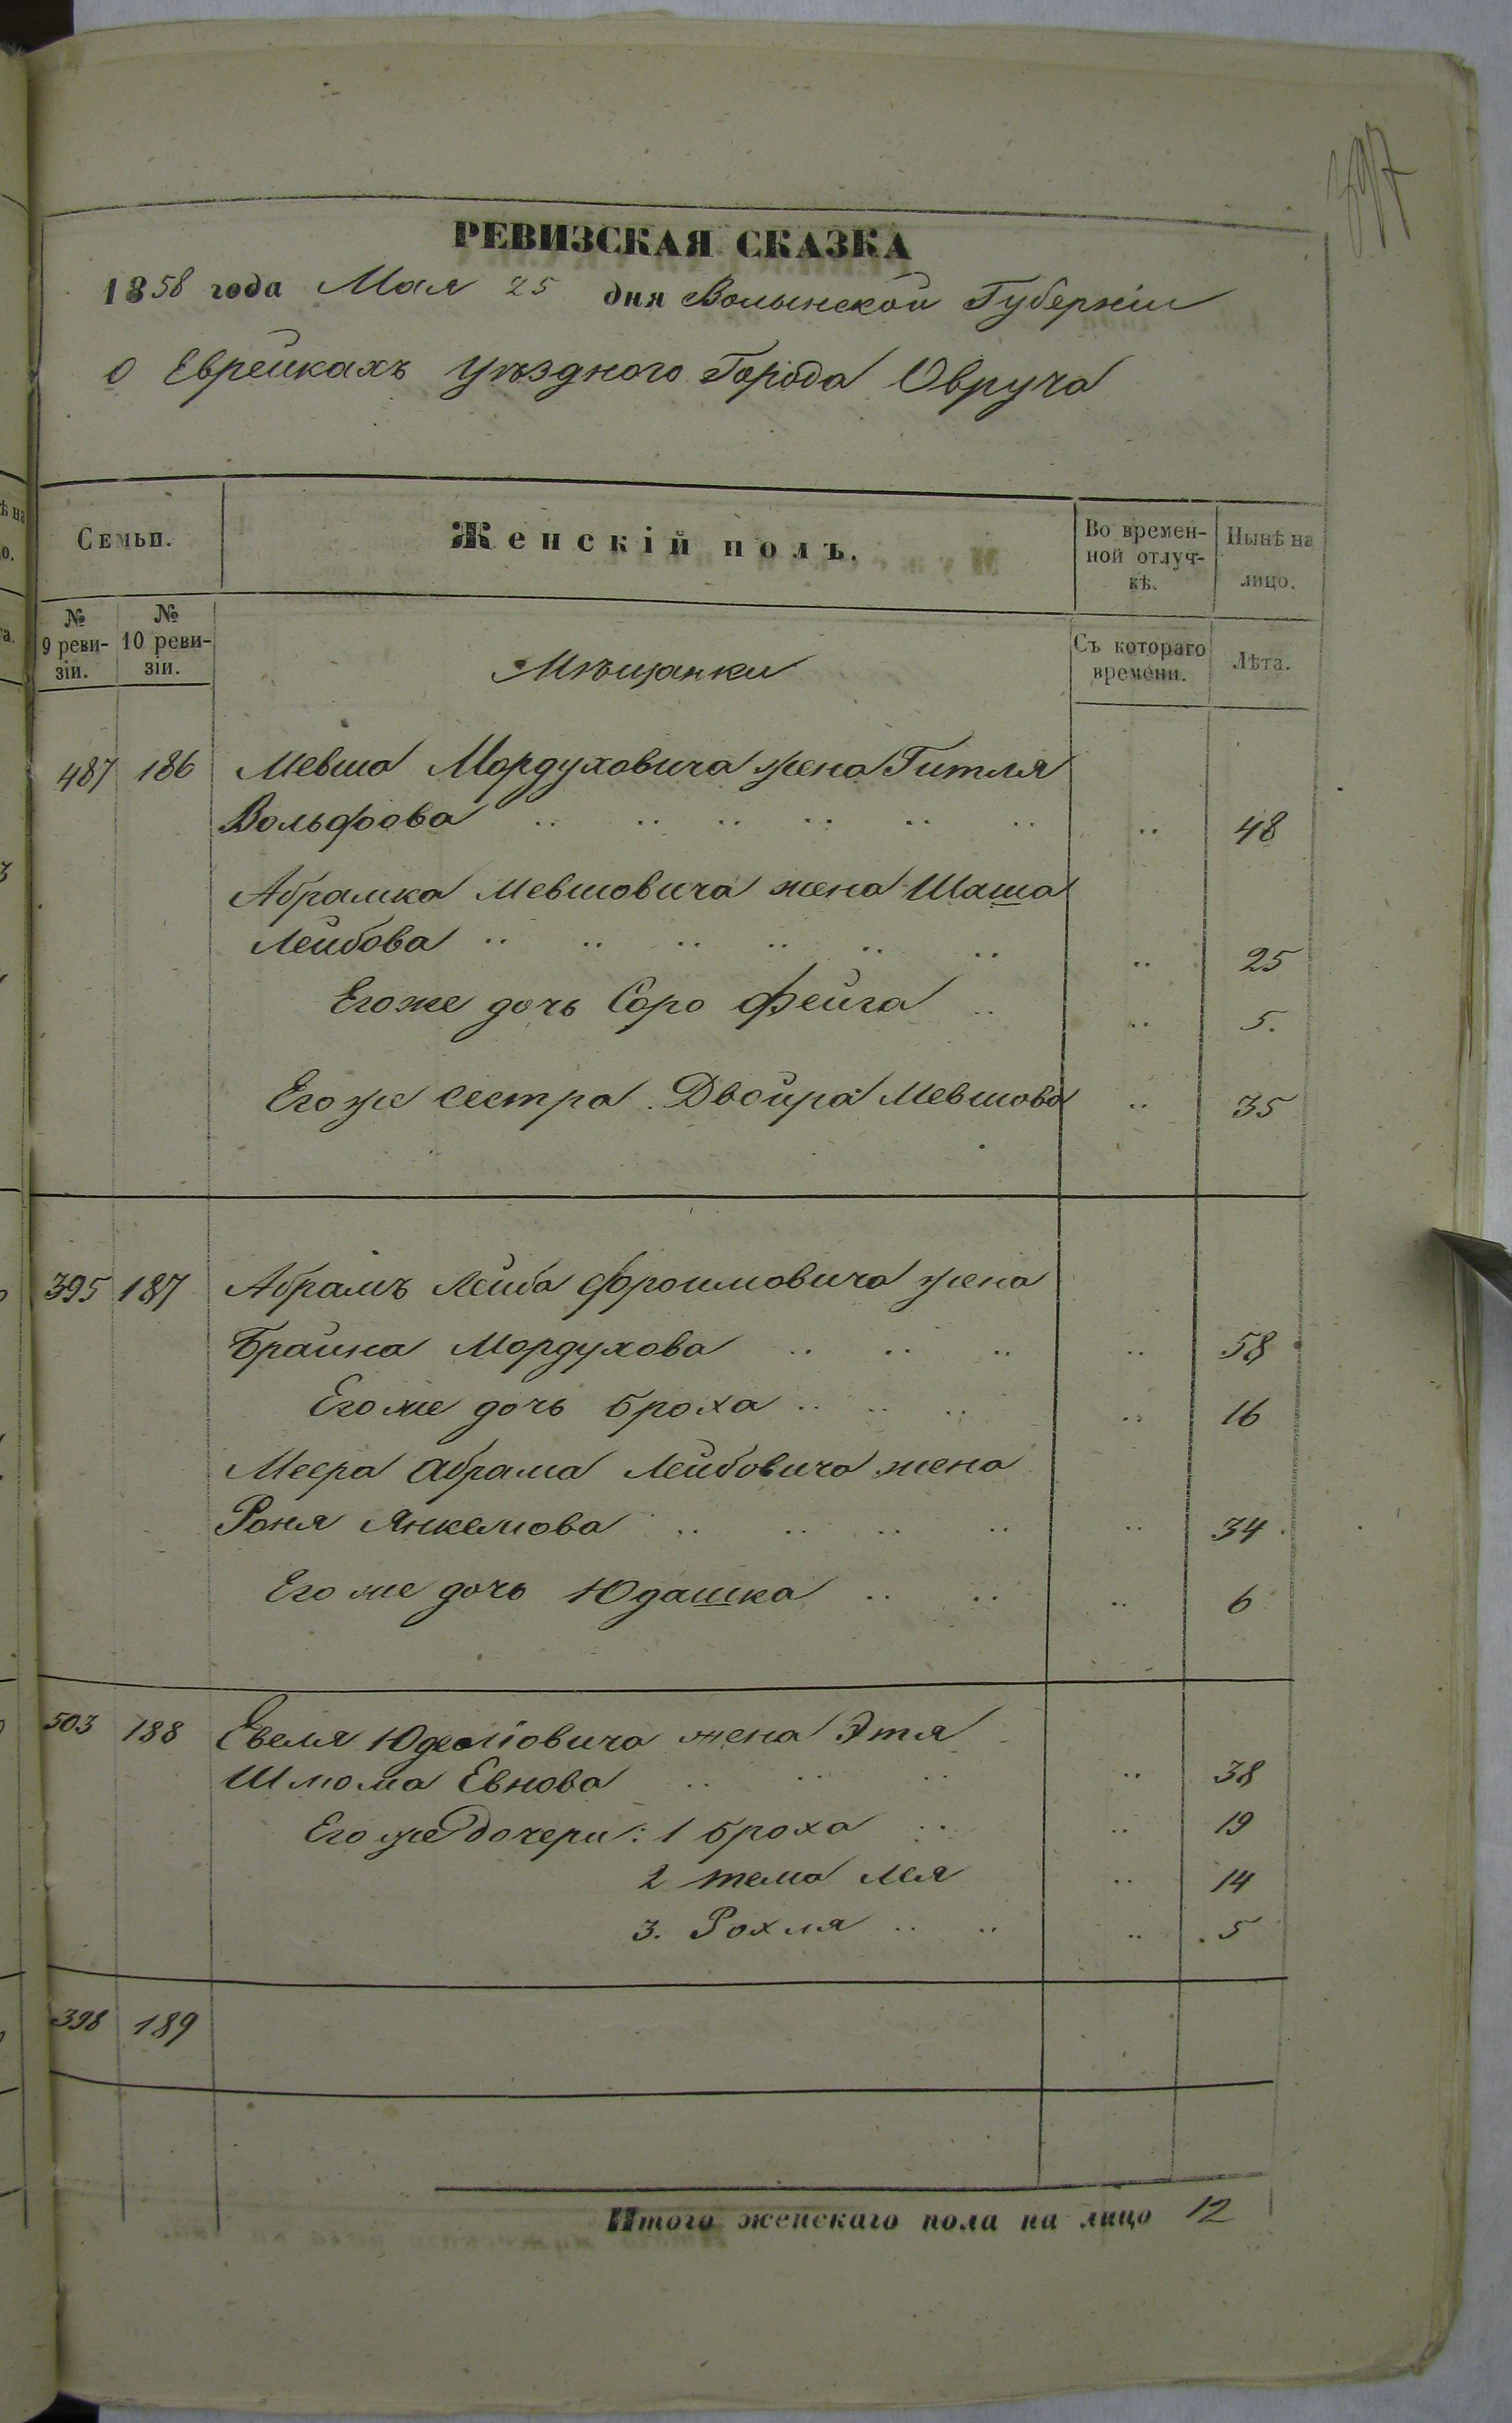 397
РЕВИЗСКАЯ СКАЗКА
1858 года Мая 25 дня Волынской Губерніи
о Еврейкахъ уѣзднаго Города Овруча
Семьи.
Женскій полъ.
Во времен-
ной отлуч-
кѣ.
Нынѣ на
лицо.
№
9 реви-
зіи.
№
10 реви-
зіи.
Мѣщанки
Съ котораго
времени.
Лѣта.
487 186 Мевша Мордуховича жена Гитля
Вольфова .. .. .. .. .. .. .. 48
Абрамка Мевшовича жена Шаша
Лейбова .. .. .. .. .. .. .. 25
Егоже дочь Соро Фейга .. .. 5.
Егоже сестра Двойра Мевшова .. 35
395 187 Абрамъ Лейба Фроимовича жена
Брайна Мордухова .. .. .. .. 58
Егоже дочь Броха .. .. .. .. 16
Меера Абрама Лейбовича жена
Роня Янкелиова .. .. .. .. .. 34
Егоже дочь Юдашка .. .. .. 6
503 188 Евеля Юделіовича жена Этя
Шлиома Евнова .. .. .. .. 38
Егоже дочери: 1 Броха .. .. 19
2 тема Лея .. 14
3. Рохля .. .. .. 5
398 189
Итого женскаго пола на лицо 12